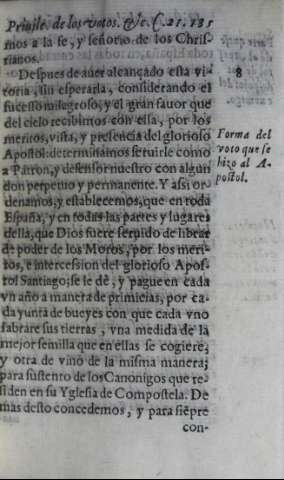 Priuile. de los votos. &c. C. 21. 185
mos a la fe, y señorio de los Chris-
tianos.
Despues de auer alcançado esta vi-
toria, sin esperarla, considerando el
sucesso milagroso, y el gran fauor que
del cielo recibimos con ella, por los
meritos, vista, y presencia del glorioso
Apostol: determinamos seruirle como
a Patron, y defensor nuestro con algun
don perpetuo y permanente. Y assi or-
denamos, y establecemos, que en toda
España, y en todas las partes y lugares
della, que Dios fuere seruido de librar
de poder de los Moros, por los meri-
tos, e intercession del glorioso Apos-
tol Santiago; se le dè, y pague en cada
vn año a manera de primicias, por ca-
da yunta de bueyes con que cada vno
labrare sus tierras, vna medida de la
mejor semilla que en ellas se cogiere,
y otra de vino de la misma manera;
para sustento de los Canonigos que re-
siden en su Yglesia de Compostela. De
mas desto concedemos, y para siẽpre
con-
8
Forma del
voto que se
hizo al A-
postol.